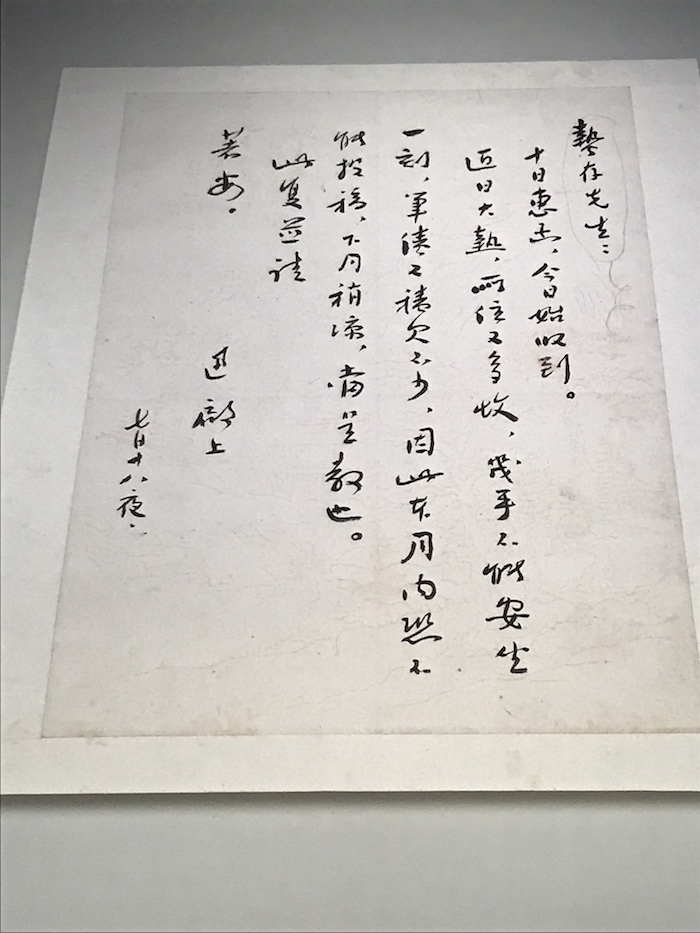 蟄存先生：
十日惠函，今日始收到。
近日大熱，所住又多蚊，幾乎不能安坐
一刻，筆債又積欠不少，因此本月內恐不
能投稿，下月稍涼，當呈教也。
此复並請
著安。
迅 啟上
七月十八夜。